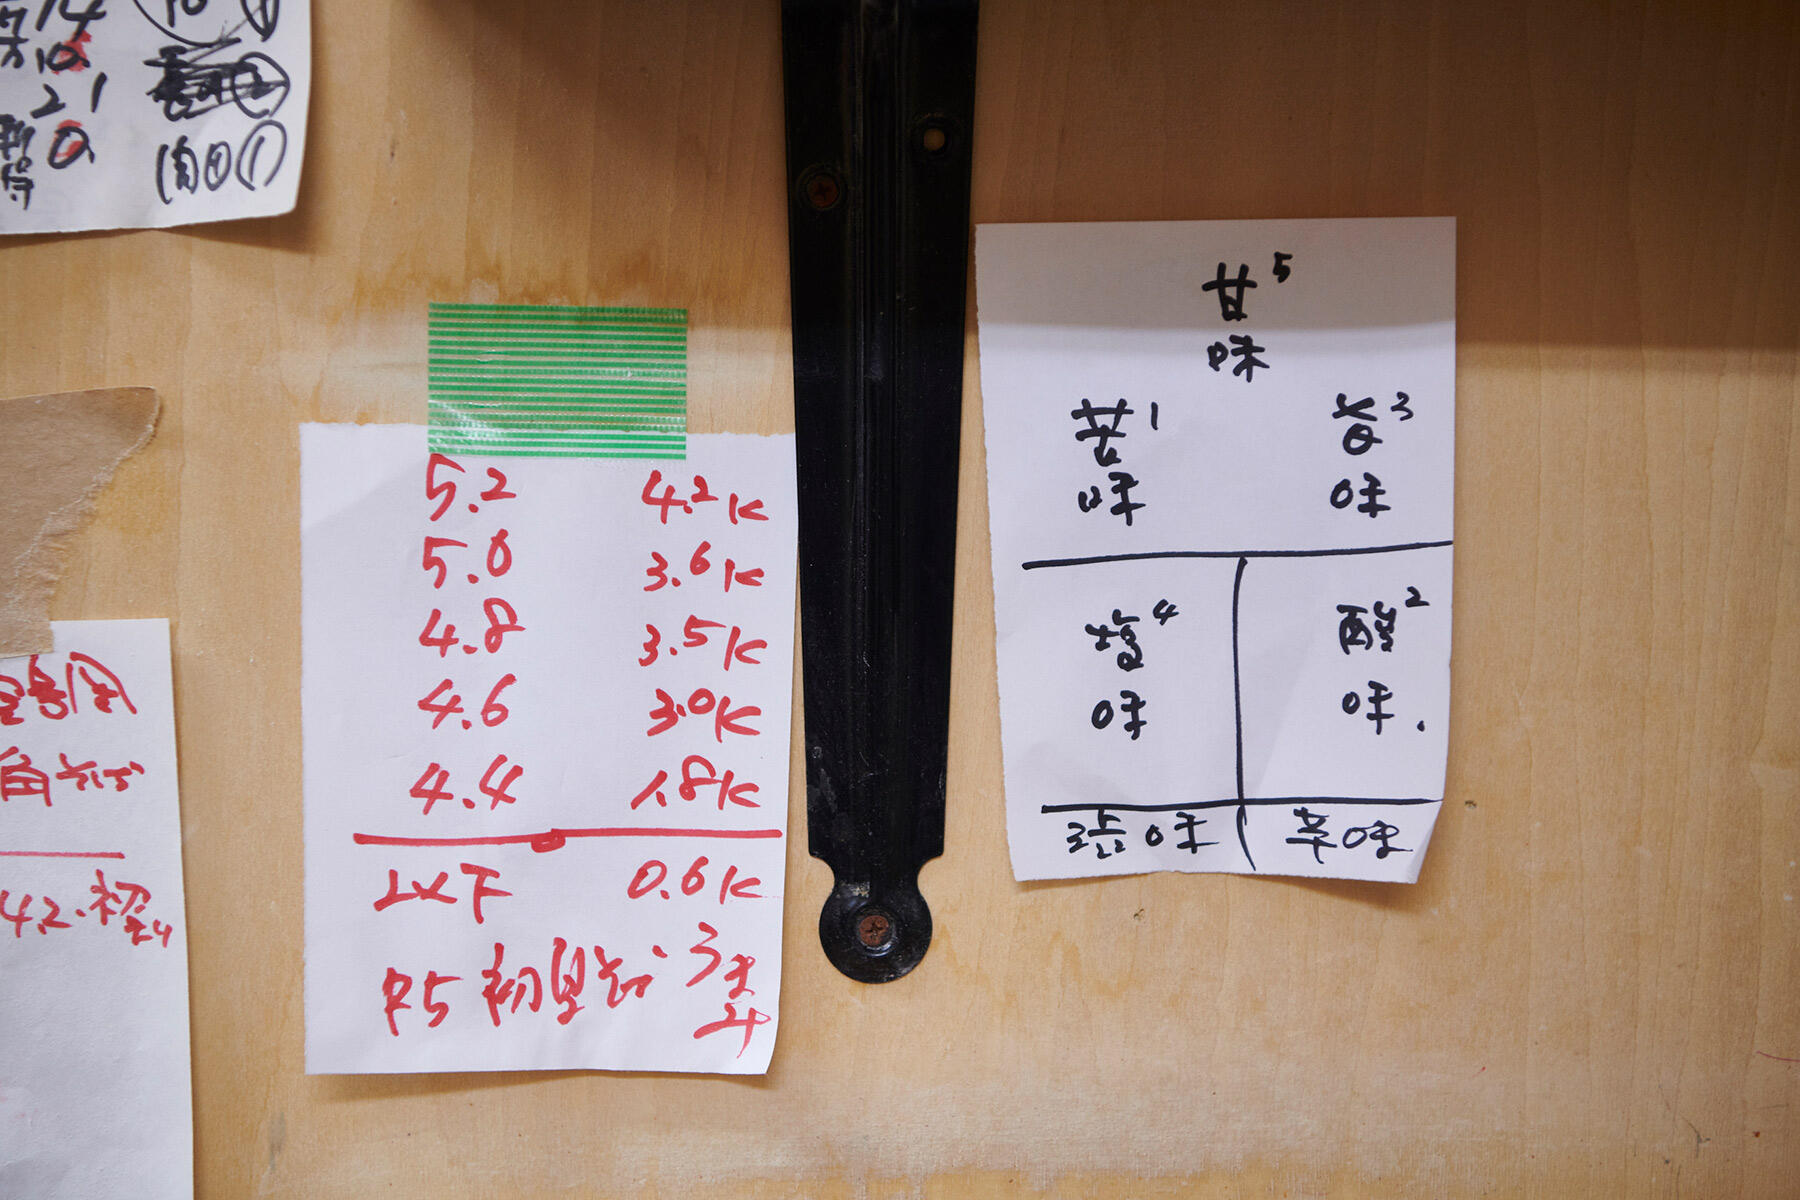 14
10.
21
0.
肉田①
角そば
5.2 4.2K
5.0 3.6K
4.8 3.5K
4.6 3.0K
4.4 1.8K
以下 0.6K
R5 初
甘5
味
苦1 旨3
味 味
塩4 酸2
味 味.
渋味 辛味